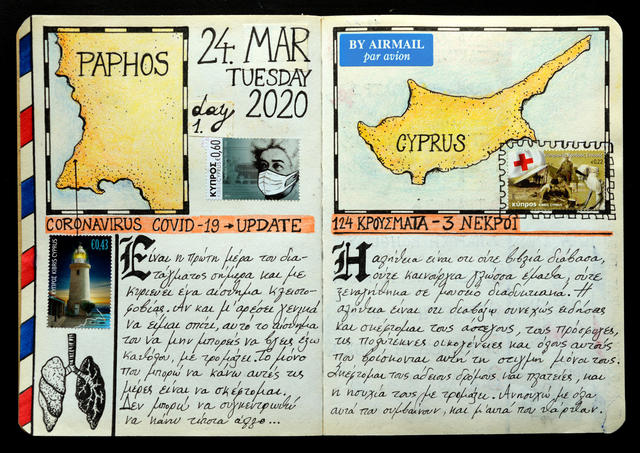 PAPHOS
24. MAR
TUESDAY
2020
day
1.
ΚΥΠΡΟΣ 0,60
CORONAVIRUS COVID-19 → UPDATE
€0,43
ΚΥΠΡΟΣ KIBRIS CYPRUS
Είναι η πρώτη μέρα του δια-
τάγματος σήμερα και με
κυριεύει ένα αίσθημα κλειστο-
φοβίας. Αν και μ'αρέσει γενικά
να είμαι σπίτι, αυτό το αίσθημα
του να μην μπορείς να βγεις έξω
καθόλου, με τρομάζει. Το μόνο
που μπορώ να κάνω αυτές τις
μέρες είναι να σκέφτομαι.
Δεν μπορώ να συγκεντρωθώ
να κάνω τίποτα άλλο...
BY AIRMAIL
par avion
CYPRUS
€0,22
ΚΥΠΡΟΣ KIBRIS CYPRUS
124 ΚΡΟΥΣΜΑΤΑ - 3 ΝΕΚΡΟΙ
Η αλήθεια είναι ότι ούτε βιβλία διάβασα,
ούτε καινούργια γλώσσα έμαθα, ούτε
ξεναγήθηκα σε μουσείο διαδικτυακά. Η
αλήθεια είναι ότι διαβάζω συνεχώς ειδήσεις
και σκέφτομαι τους άστεγους, τους πρόσφυγες,
τις πολύτεκνες οικογένειες και όλους αυτούς
που βρίσκονται αυτή τη στιγμή μόνοι τους.
Σκέφτομαι τους άδειους δρόμους και πλατείες, και
η ησυχία τους με τρομάζει. Ανησυχώ με όλα
αυτά που συμβαίνουν, και μ'αυτά που θα'ρθουν.